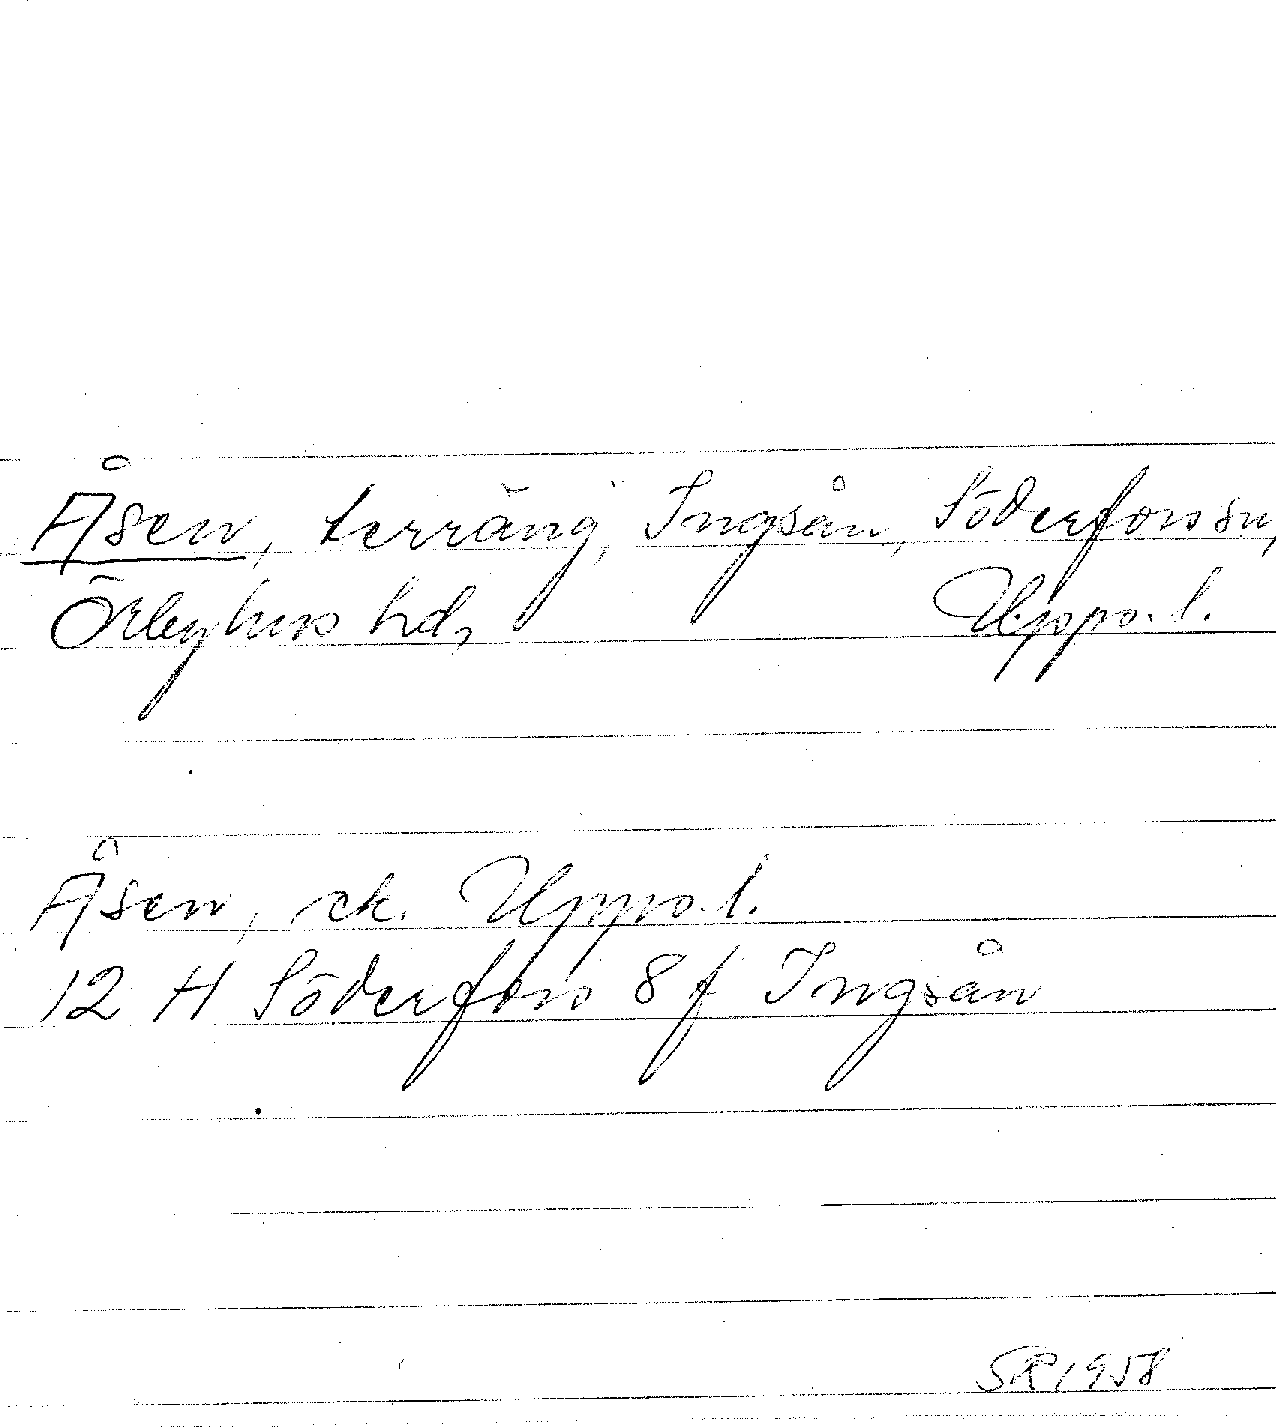 Åsen, terräng, Ingsån, Söderfors sn,
Örbyhus hd, Upps. l.
Åsen, ek. Upps. l.
12 H Söderfors 8 f Ingsån
SR 1958